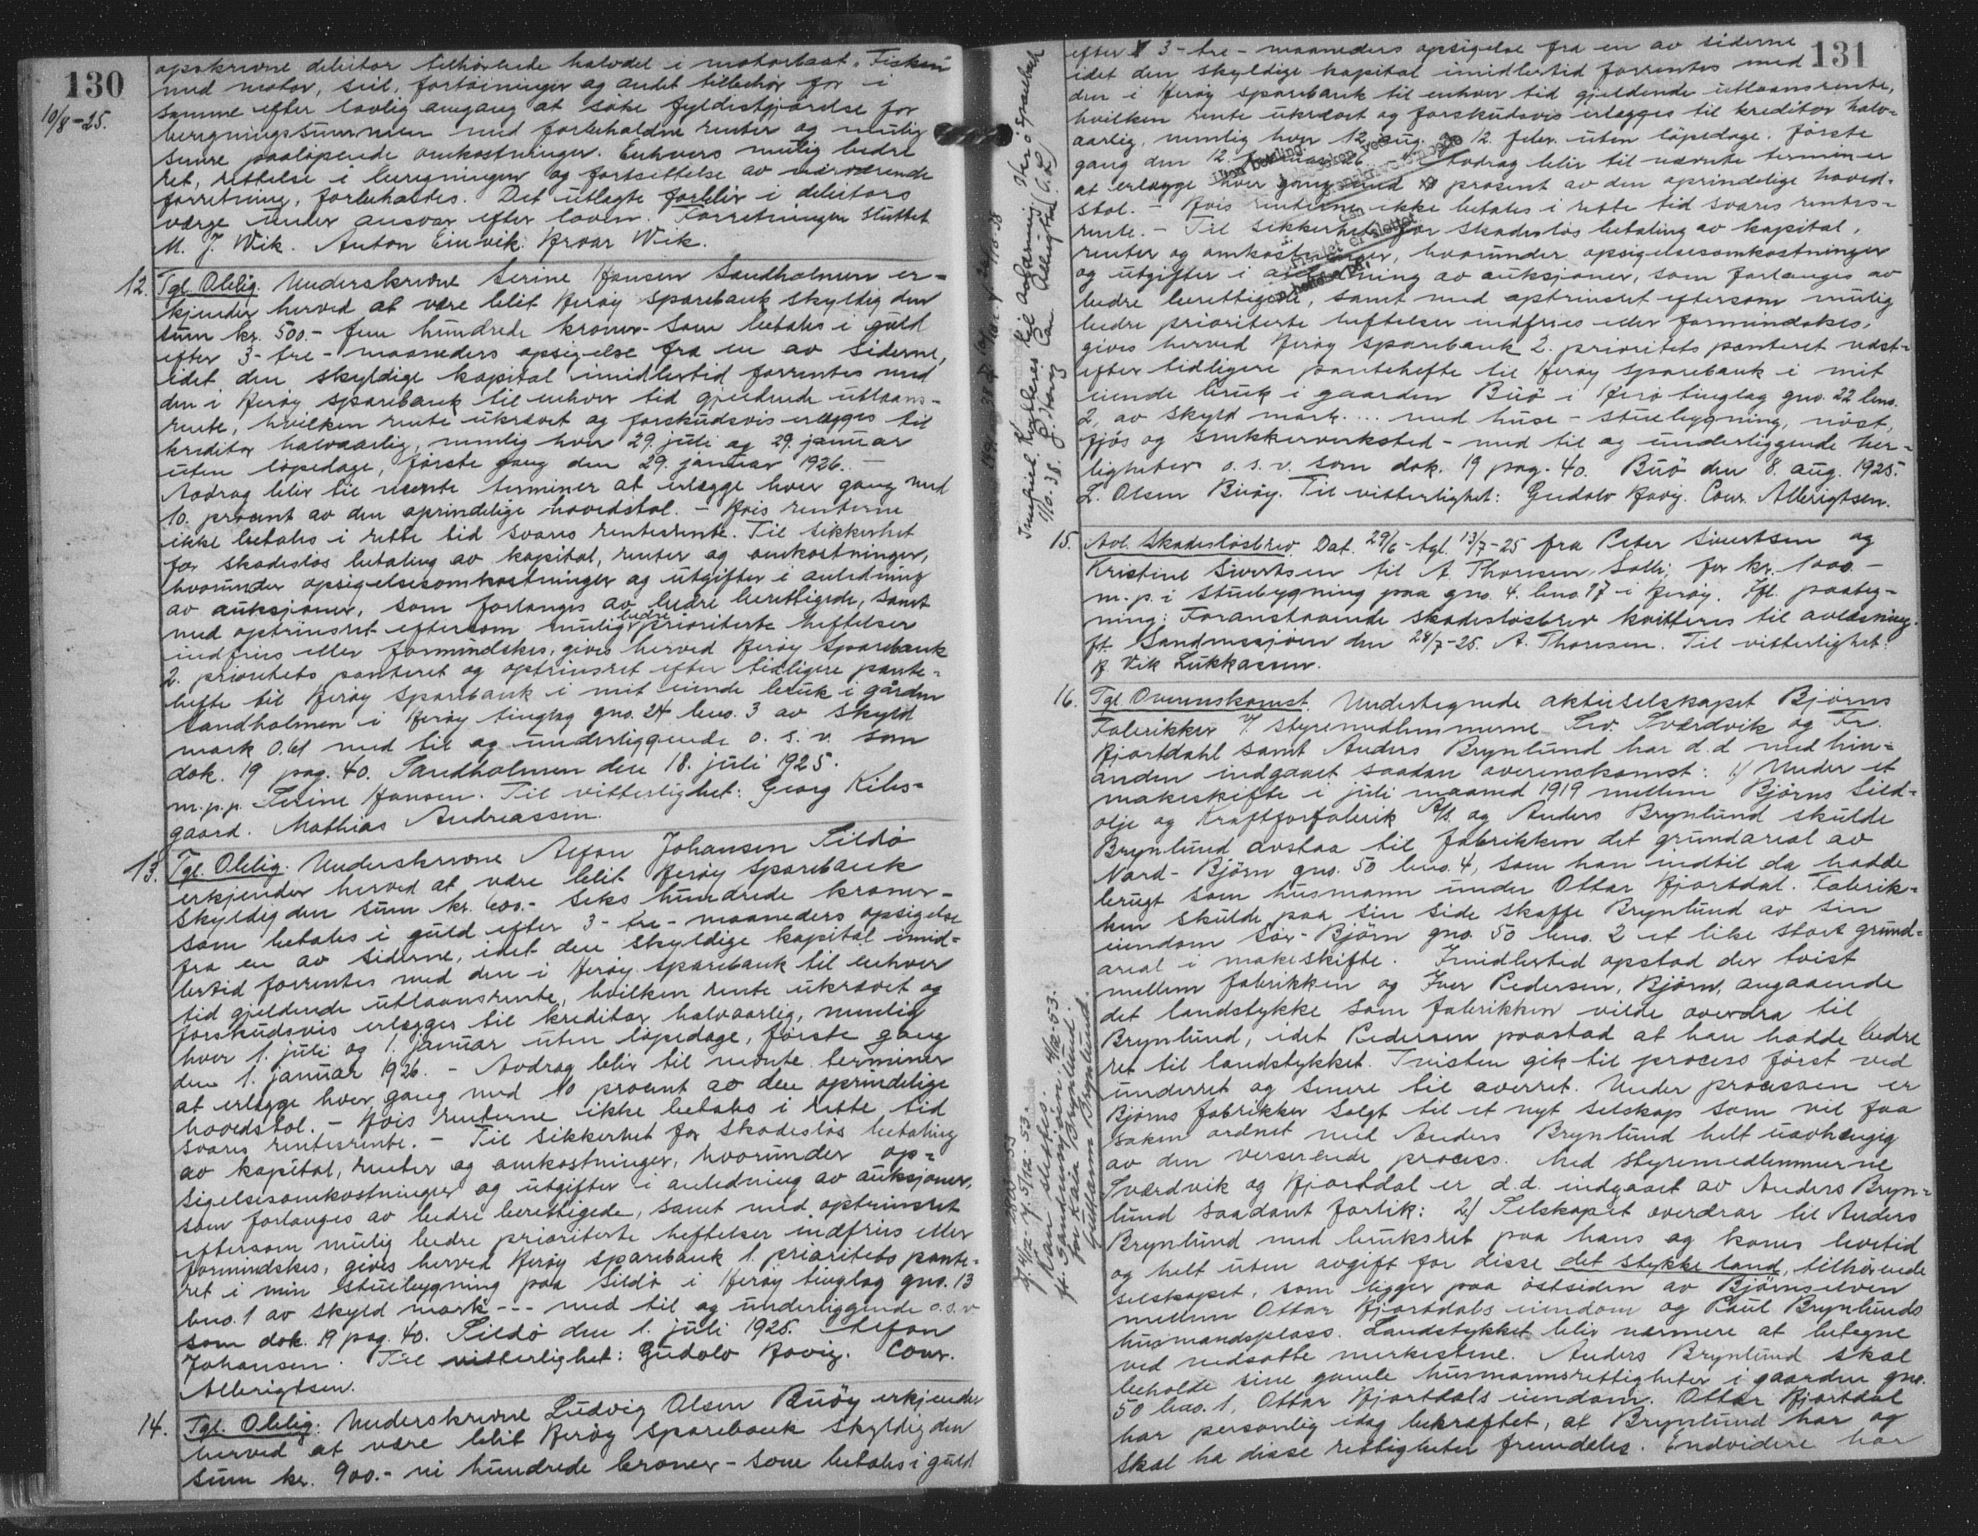 130
10/8-25.
opskrevne debitor tilhörende halvdel i motorbaat "Fisken"
med motor, seil, fortöininger og andet tilbehör for i
samme efter lovlig omgang at söke fyldestgjörelse for
beregningssummen med forbeholdne renter og mulig
senere paalöpende omkostninger. Enhvers mulig bedre
ret, rettelse i beregningen og fortsættelse av nærværende
forretning, forbeholdes. Det utlagte forblir i debitors
værge under ansvar efter loven. Forretningen sluttet
M. J. Wik. Anton Einvik. Hroar Wik.
12. Tgl. Oblig. Underskrevne Serine Hansen Sandholmen er-
kjender herved at være blit Herøy Sparebank skyldig den
sum kr. 500.- fem hundrede kroner - som betales i guld
efter 3 - tre - maaneders opsigelse fra en av siderne,
idet den skyldige kapital imidlertid forrentes med
den i Herøy sparebank til enhver tid gjeldende utlaans-
rente, hvilken rente ukrævet og forskudsvis erlægges til
kreditor halvaarlig, nemlig hver 29. juli og 29. januar
uten löpedage, förste gang den 29. januar 1926. -
Avdrag blir til nævnte terminer at erlægge hver gang med
10. procent av den oprindelige hovedstol. - Hvis renterne
ikke betales i rette tid svares rentesrente. Til sikkerhet
for skadeslös betaling av kapital, renter og omkostninger,
hvorunder opsigelsesomkostninger og utgifter i anledning
av auksjoner, som forlanges av bedre berettigede, samt
med optrinsret eftersom mulig bedre prioriterte heftelser
indfries eller formindskes, gives herved Herøy Sparebank
2. prioritets panteret og optrinsret efter tidligere pante-
hefte til Herøy Sparebank i mit eiende bruk i gården
Sandholmen i Herøy tinglag gno. 24 bno. 3 av skyld
mark 0.61 med til og underliggende o. s. v. som
dok. 19 pag. 40. Sandholmen den 18. juli 1925.
m.p.p. Serine Hansen. Til vitterlighet: Georg Kibs-
gaard. Mathias Andreassen.
13. Tgl. Oblig. Underskrevne Alfon Johansen Sildö
erkjender herved at være blit Herøy Sparebank
skyldig den sum kr. 600.- seks hundrede kroner-
som betales i guld efter 3 - tre - maaneders opsigelse
fra en av siderne, idet den skyldige kapital imid-
lertid forrentes med den i Herøy Sparebank til enhver
tid gjeldende utlaansrente, hvilken rente ukrævet og
forskudsvis erlægges til kreditor halvaarlig, nemlig
hver 1. juli og 1. januar uten löpedage, förste gang
den 1. januar 1926. - Avdrag blir til nævnte terminer
at erlægge hver gang med 10 procent av den oprindelige
hovedstol. - Hvis renterne ikke betales i rette tid
svares rentesrente. - Til sikkerhet for skadeslös betaling
av kapital, renter og omkostninger, hvorunder op-
sigelsesomkostninger og utgifter i anledning av auksjoner,
som forlanges av bedre berettigede, samt med optrinsret
eftersom mulig bedre prioriterte heftelser indfries eller
formindskes, gives herved Herøy Sparebank 1. prioritets pante-
ret i min stuebygning paa Sildö i Herøy tinglag gno. 13
bno. 1 av skyld mark --- med til og underliggende o.s.v.
som dok. 19 pag. 40. Sildö den 1. juli 1925. Alfon
Johansen. Til vitterlighet: Gudolv Hovig. Conr.
Albrigtsen.
14. Tgl. Oblig. Underskrevne Ludvig Olsen Buöy erkjender
herved at være blit Herøy Sparebank skyldig den
sum kr. 900.- ni hundrede kroner - som betales i guld
131
efter 3 - tre - maaneders opsigelse fra en av siderne
idet den skyldige kapital imidlertid forrentes med
den i Herøy sparebank til enhver tid gjeldende utlaansrente,
hvilken rente ukrævet og forskudsvis erlægges til kreditor halv-
aarlig, nemlig hver 12. aug. og 12. febr. uten löpedage. förste
gang den 12. Avdrag blir til nævnte terminer
at erlægge hver gang med 10 prosent av den oprindelige hoved-
stol. - Hvis renterne ikke betales i rette tid svares rentes-
rente. - Til sikkerhet for skadeslös betaling av kapital,
renter og omkostninger, hvorunder opsigelsesomkostninger
og utgifter i anledning av auksjoner, som forlanges av
bedre berettigede, samt med optrinsret eftersom mulig
bedre prioriterte heftelser indfries eller formindskes,
gives herved Herøy Sparebank 2. prioritets panteret næst-
efter tidligere pantehefte til Herøy Sparebank i mit
eiende bruk i gaarden Buö i Herö tinglag gno. 22 bno.
2, av skyld mark .... med huse - stuebygning, nöst,
fjös og snekkerverksted - med til og underliggende her-
ligheter o. s. v. som dok. 19 pag. 40. Buö den 8. aug. 1925.
L. Olsen Buöy. Til vitterlighet: Gudolv Hovig. Conr. Albrigtsen.
15. Avl. Skadeslösbrev. Dat. 29/6 - tgl. 13/7-25 fra Peter Sivertsen og
Kristine Sivertsen til A. Thoresen, Solli, for kr. 1000.-
m. p. i stuebygning paa gno. 4. bno. 17 i Herøy. Ifl. paateg-
ning: Foranstaaende skadeslösbrev kvitteres til avlæsning.
pt. Sandnessjöen den 28/7-25. A. Thoresen. Til vitterlighet:
H Vik Lukkassen.
16. Tgl. Overenskomst. Undertegnede aktieselskapet Bjørns
Fabrikker v/ styremedlemmerne Sev. Sværdvik og Fr.
Hjortdahl samt Anders Brynlund har d. d. med hin-
anden indgaaet saadan overenskomst: 1) Under et
makeskifte i juli maaned 1919 mellem Bjørns Sild-
olje og Kraftforfabrik A/S. og Anders Brynlund skulde
Brynlund avstaa til fabrikken det grundareal av
Nord-Bjørn gno. 50 bno. 4, som han indtil da hadde
brugt som husmann under Ottar Hjortdal. Fabrik-
ken skulde paa sin side skaffe Brynlund av sin
eiendom Sör-Björn gno. 50 bno. 2 et like stort grund-
areal i makeskifte. Imidlertid opstod der tvist
mellem fabrikken og Iver Pedersen, Bjørn, angaaende
det landstykke som fabrikken vilde overdra til
Brynlund, idet Pedersen paastod at han hadde bedre
ret til landstykket. Tvisten gik til process först ved
underret og senere til overret. Under processen er
Bjørns fabrikker solgt til et nyt selskap som vil faa
saken ordnet med Anders Brynlund helt uavhengig
av den verserende process. Med styremedlemmerne
Sværdvik og Hjortdal er d.d. indgaaet av Anders Bryn-
lund saadant forlik: 2) Selskapet overdrar til Anders
Brynlund med bruksret paa hans og kones levetid
og helt uten avgift for disse det stykke land, tilhörende
selskapet, som ligger paa östsiden av Björnselven
mellem Ottar Hjortdals eiendom og Paul Brynlunds
husmandsplass. Landstykket blir nærmere at betegne
ved nedsatte merkestene. Anders Brynlund skal
beholde sine gamle husmannsrettigheter i gaarden gno.
50 bno. 1, Ottar Hjortdals eiendom. Ottar Hjortdal
har personlig idag bekræftet, at Brynlund har og
skal ha disse rettigheter fremdeles. Endvidere har
Kan slettes.
pt. Sandnessjöen, 4/12-53.
for Kaia Brynlund.
Gullann Brynlund.